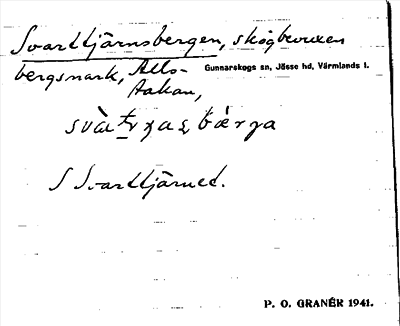 Svarttjärnsbergen, skogbevuxen
bergsmark, Älls-
Gunnarskogs sn, Jösse hd, Värmlands l.
takan,
S Svarttjärnet.
P. O. GRANÉR 1941.